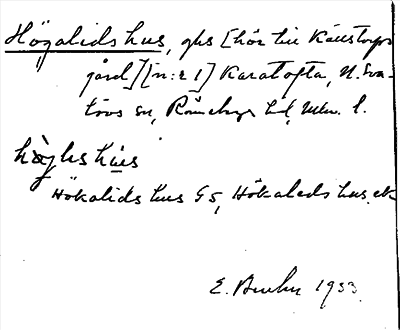 Högalids hus, ghs [hör till Källstorps
gård] [n:r 1] Karatofta, N. Sva-
lövs sn, Rönnebergs hd, Mlm. l.
hòglis hús
Hökalids hus GS, Hökaleds hus ek
E. 1933